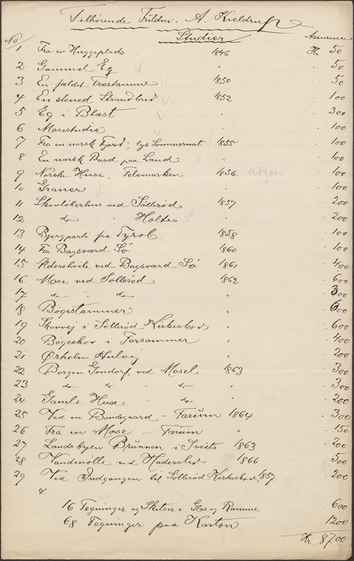 Tilhørende Frøken A. Kieldrup
No. Studier
1 Fra en Huggeplads 1846 Kr. 50
2 Gammel Eg " 50
3 En faldet Træstamme 1850 50
4 En stenet Strandbred 1852 100
5 Eg i Blæst " 300
6 Marestudie " 100
7 Fra en norsk Fjord, lys Sommernat 1855 100
8 En norsk paa Land " 100
9 Norske Huse, Telemarken 1856 100
10 Graner " 100
11 ved Søllerød 1857 200
12 do Holte " 200
13 Bjergparti fra Tyrol 1858 100
14 Fra Bagsværd Sø 1860 100
15 ved Bagsværd Sø 1861 400
16 Mose ved Søllerød 1862 600
17 do do 300
18 Bøgestammer " 600
19 Skovvej i Søllerød Kirkeskov " 600
20 Bøgeskov i Foraaret " 400
21 Øxholm " 200
22 Borgen Gondorf ved Mosel 1863 300
23 do do do 300
24 Gamle Huse do 200
25 Ved en Bondegaard - Farum 1864 300
26 Fra en Mose - Farum " 150
27 Landsbyen Brunnen i Sveits 1863 200
28 Vandmølle ved Haderslev 1866 500
29 Ved Indgangen til Søllerød Kirkeskov 1857 200
16 Tegninger og Skitser i Glas og Ramme 600
68 Tegninger paa Karton 1200
Kr. 8700